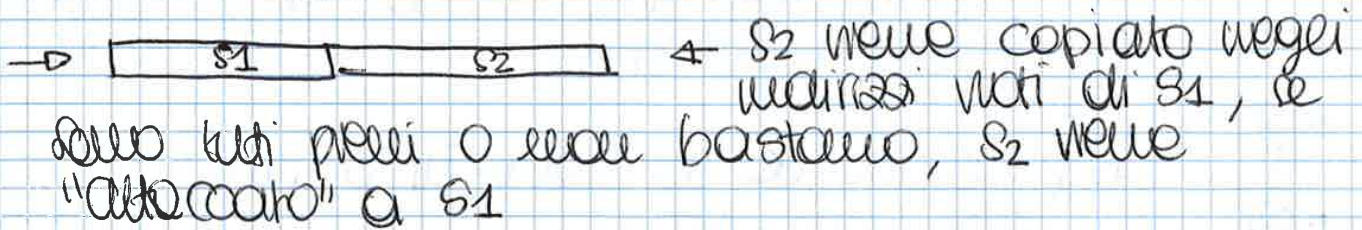 S1 S2 S2 viene copiato negli
indirizzi vuoti di S1, se
sono tutti pieni o non bastano, S2 viene
"attaccato" a S1